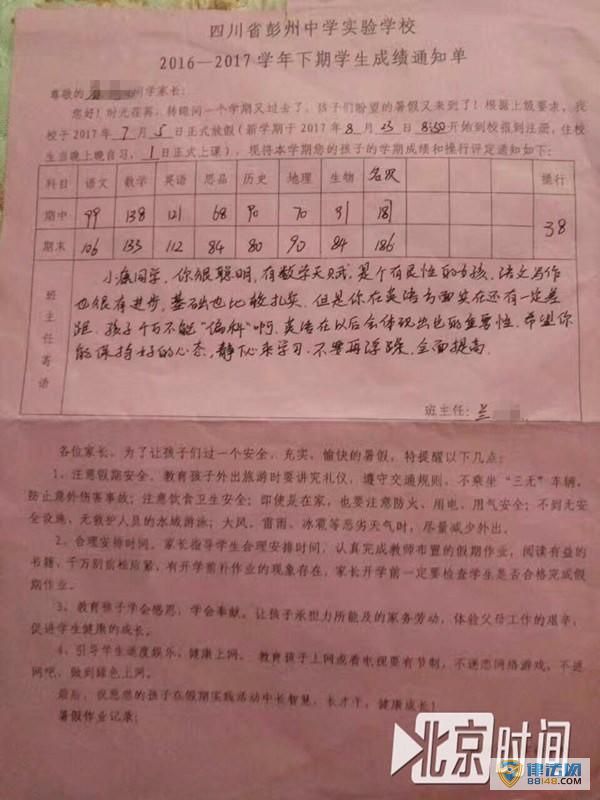 四川省彭州中学实验学校
2016—2017学年下期学生成绩通知单
尊敬的 同学家长:
您好!时光荏苒,转眼间一个学期又过去了,孩子们盼望的暑假又来到了!根据上级要求,我
校于2017年7月5日正式放假(新学期于2017年8月23日8:30开始到校报到注册,住校
生当晚上晚自习,1日正式上课),现将本学期您的孩子的学期成绩和操行评定通知如下:
科目 语文 数学 英语 思品 历史 地理 生物 名次 操行
期中 99 138 121 68 90 70 91 181 38
期末 106 133 112 84 80 90 84 186
班主任寄语
小 同学,你很聪明,有数学天赋,是个有灵性的女孩,语文写作
也很有进步,基础也比较扎实,但是你在英语方面实在还有一定差
距,孩子千万不能“偏科”啊,英语在以后会体现出它的重要性,希望你
能保持好的心态,静下心来学习,不要再浮躁,全面提高.
班主任:兰
各位家长,为了让孩子们过一个安全、充实、愉快的暑假,特提醒以下几点:
1、注意假期安全。教育孩子外出旅游时要讲究礼仪,遵守交通规则,不乘坐“三无”车辆,
防止意外伤害事故;注意饮食卫生安全;即使是在家,也要注意防火、用电、用气安全;不到无安
全设施、无救护人员的水域游泳;大风、雷雨、冰雹等恶劣天气时,尽量减少外出。
2、合理安排时间。家长指导学生合理安排时间,认真完成教师布置的假期作业,阅读有益的
书籍,千万别前松后紧,有开学前补作业的现象存在,家长开学前一定要检查学生是否合格完成假
期作业。
3、教育孩子学会感恩,学会奉献。让孩子承担力所能及的家务劳动,体验父母工作的艰辛,
促进学生健康的成长。
4、引导学生适度娱乐、健康上网。教育孩子上网或看电视要有节制,不迷恋网络游戏,不进
网吧,做到绿色上网。
最后,祝您您的孩子在假期实践活动中长智慧,长才干,健康成长!
暑假作业记录:
北京时间
律法网
88148.com